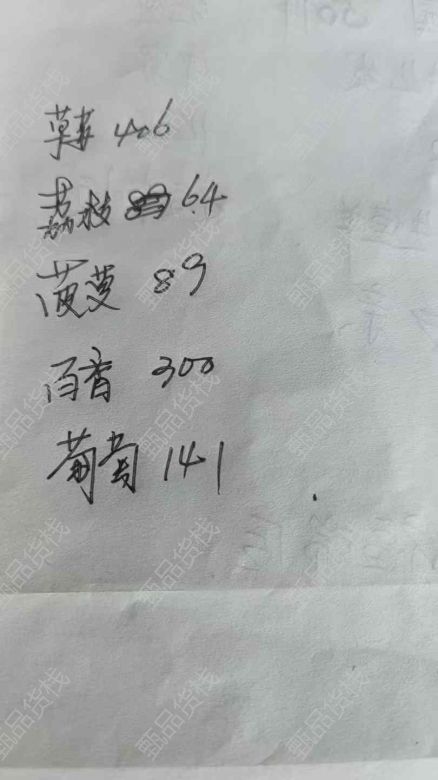 草莓 406
荔枝 64
菠萝 89
百香 300
葡萄 141
甄品货栈